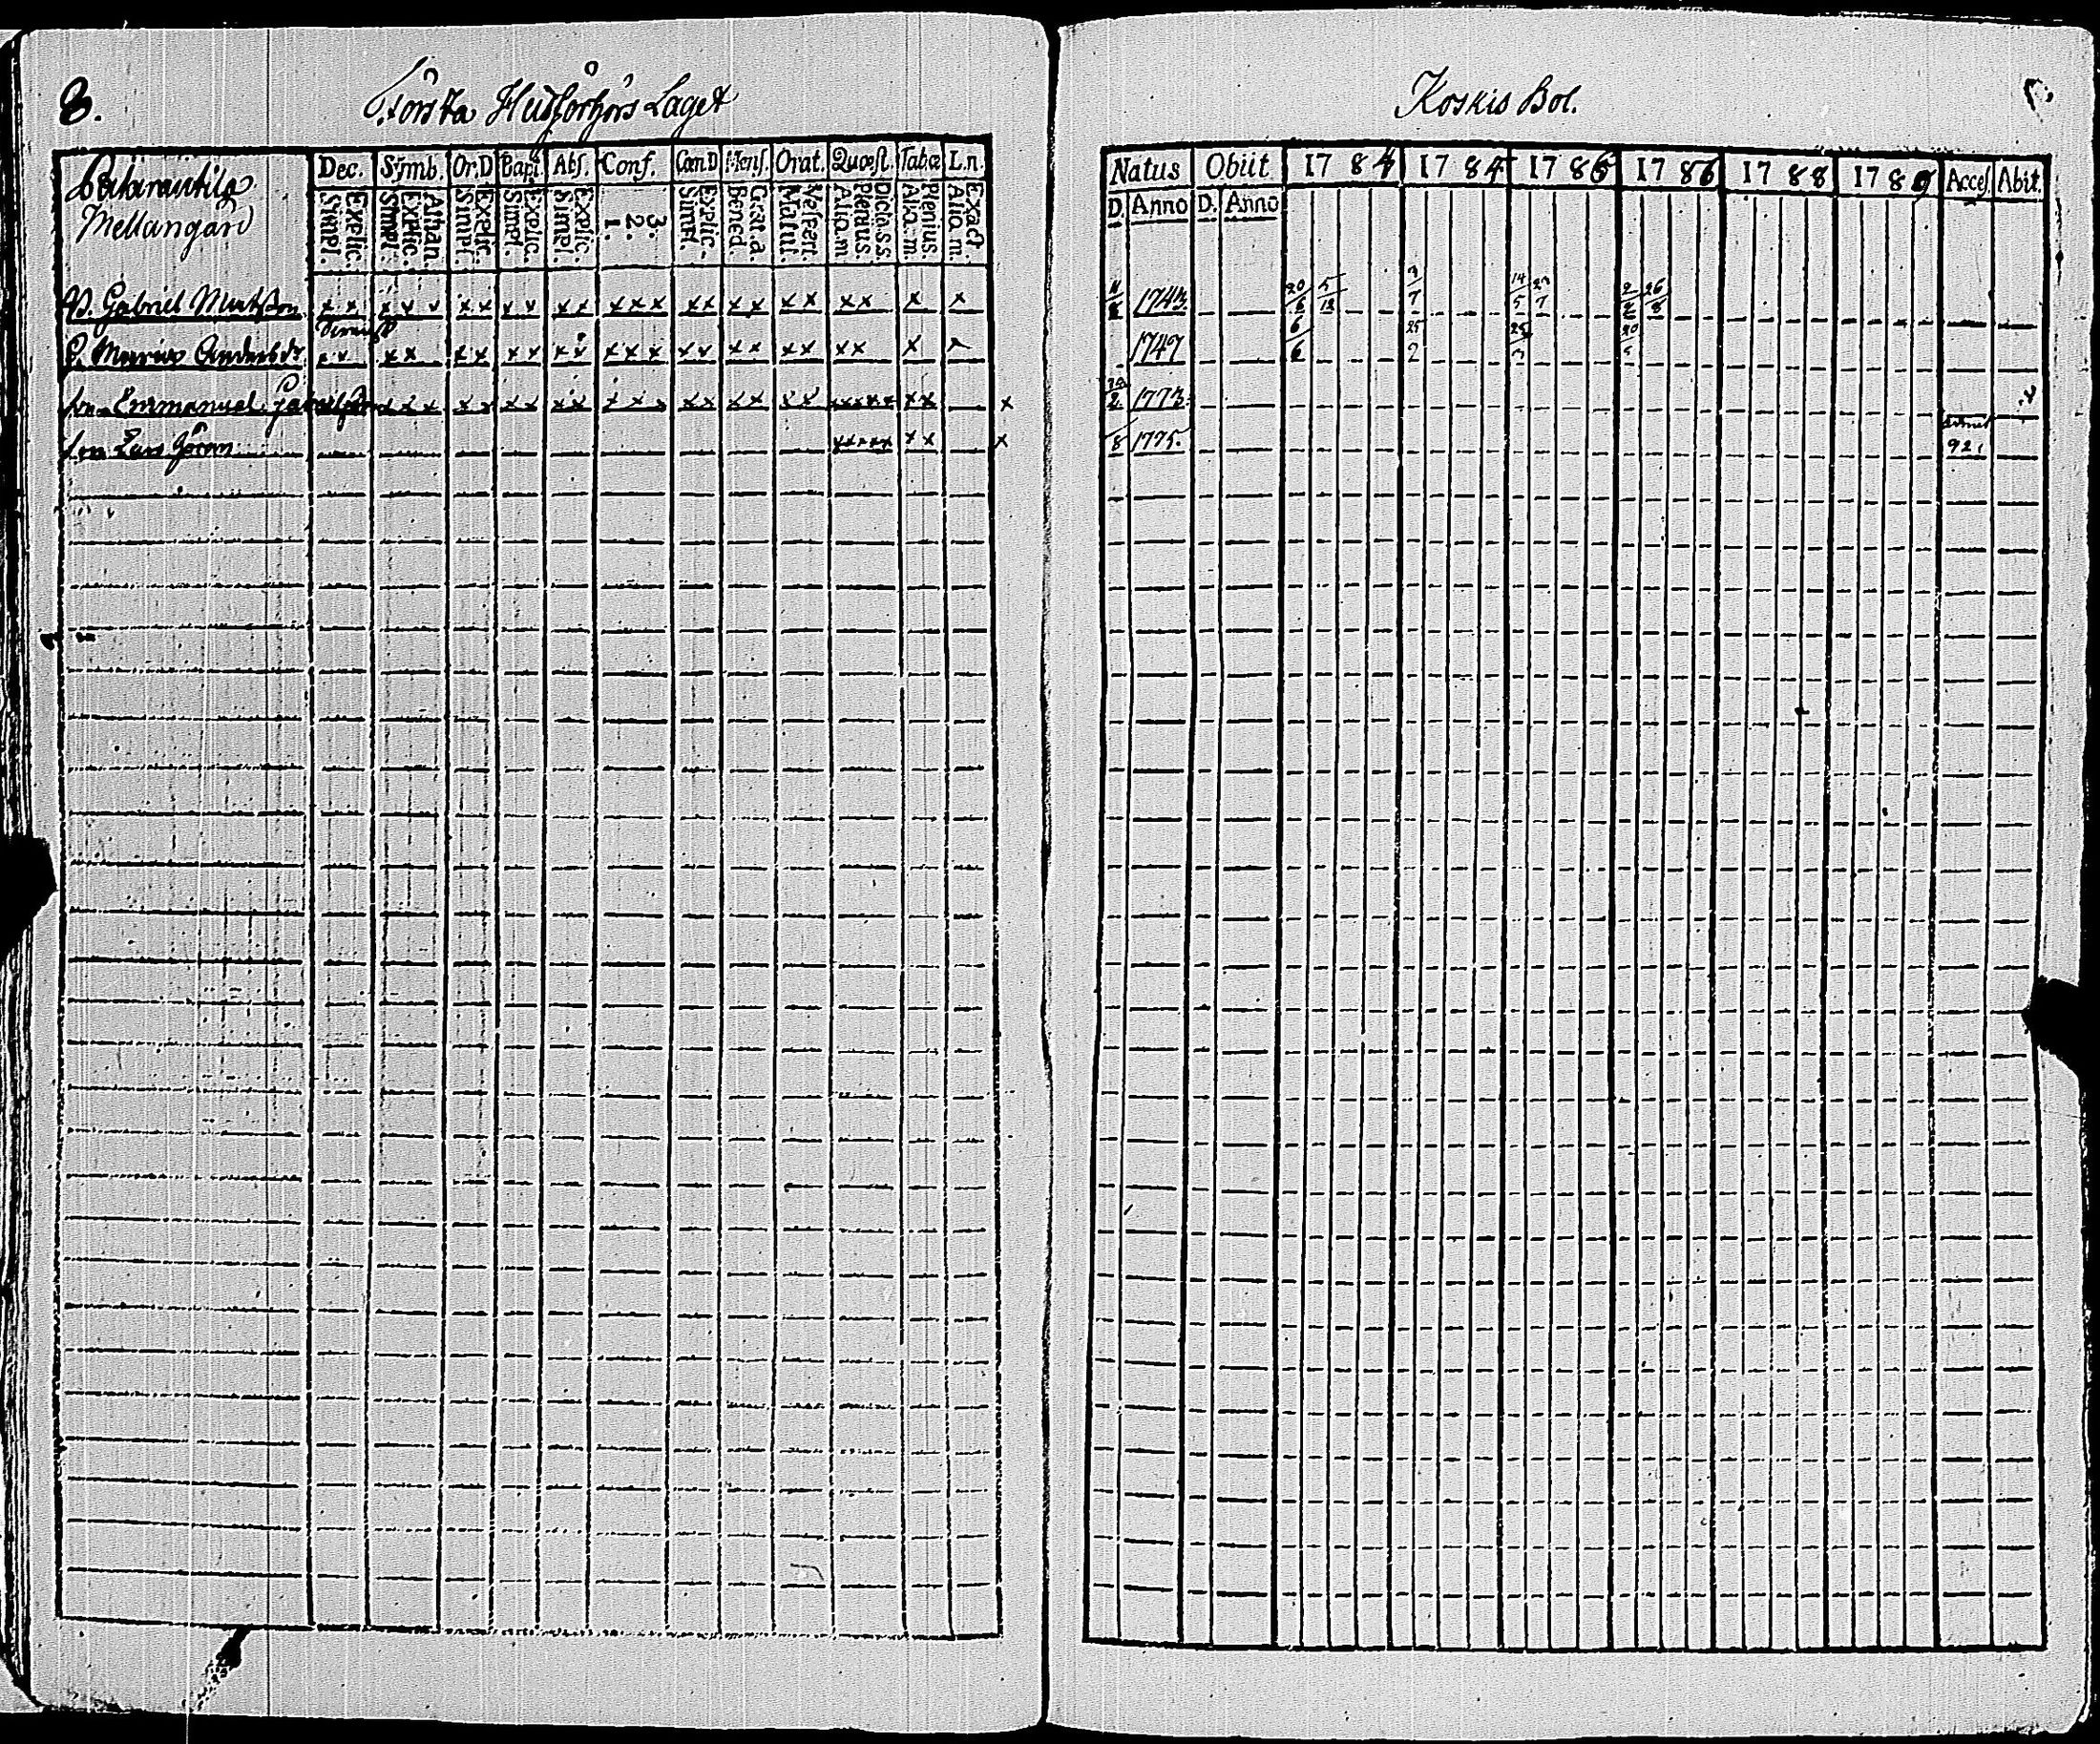 8.
Första Husförhörs Laget
Mellangård
Dec. Symb. Or.D Bapt. Abs. Conf. Cœn.D Mens. Orat. Quæst. Tabœ L.n.
Simpl. Explic. Simpl. Explic. Athan. Simpl. Explic. Simpl. Explic. Simpl. Explic. 1. 2. 3. Simpl. Explic. Bened. Grat.a. Matut. Vespert. Aliq.m. Plenius Dicta.s.s. Aliq.m. Plenius Aliq.m. Exact.
B. Gabriel Matsson x x x x v x x x v x x x x x x x x x x x x x x x
H. Maria Andersdr x v x x x x x x x x x x x x v x x x x x x x
son Emmanuel x x x x x x x x x x x x x x x x x x x x x x x x
son Lars Göran x x x x x x x x
Koskis Bol.
Natus Obiit 1784 1784 1785 1786 1788 1789 Acces. Abit.
D. Anno D. Anno
1743. 20/6 5/12 3/7 14/5 2/2 26/8
1747 6/6 25/2 25/3 20/5
1773.
8 1775. 92.